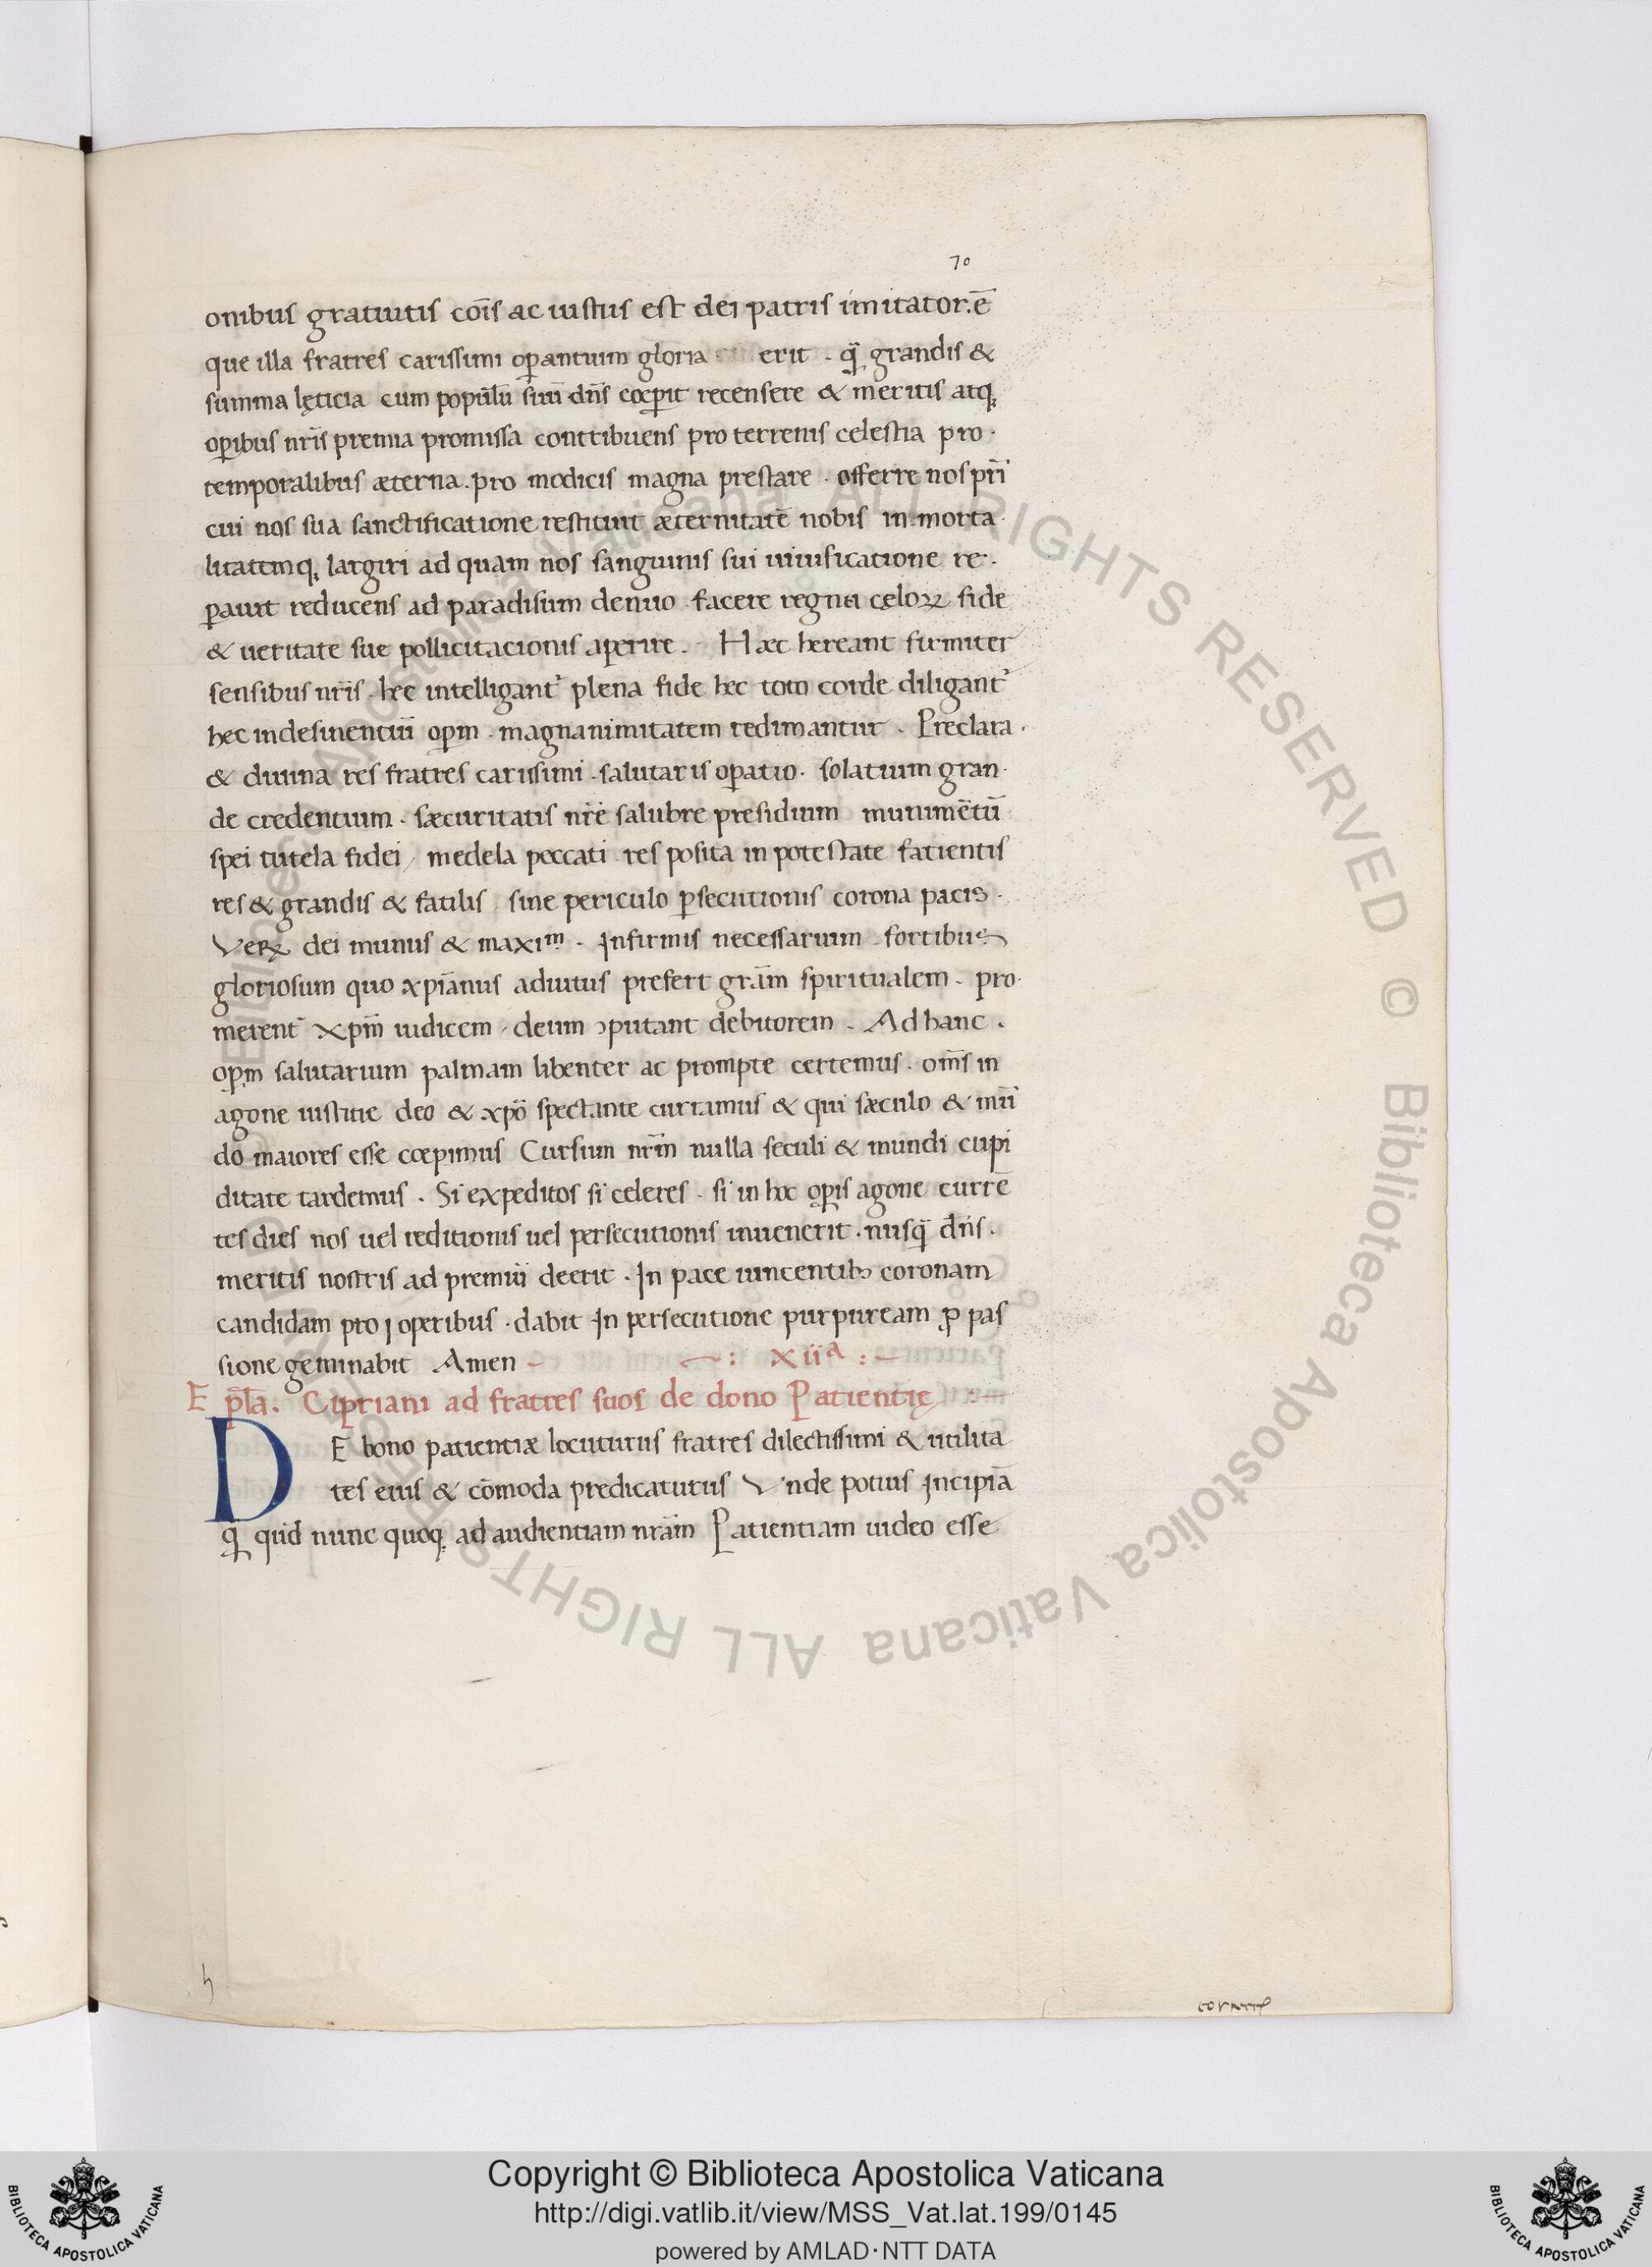 70
onibus gratuitis cōīs ac iustus est dei patris imitator. ē
que illa fratres carissimi oꝑantium gloria erit . q̄ꝫ grandis &
summa lęticia cum populū suū dn̄s cœꝑit recensere & meritis atqꝫ
oꝑibus nr̄is premia promissa contribuens pro terrenis celestia pro·
temporalibus æterna . pro modicis magna prestare . offerre nos pr̄i
cui nos sua sanctificatione restituit æternitatē nobis in morta·
litatemqꝫ largiri ad quam nos sanguinis sui uiuificatione re·
ꝑauit reducens ad paradisum denuo . facere regna cęloꝝ fide
& ueritate sue pollicitacionis aperire . Hæc hereant firmiter
sensibus nr̄is . hec intelligant᷑ plena fide hec toto corde diligant᷑
hec indesinentiū oꝑm . magnanimitatem redimantur . Preclara .
& diuina res fratres carissimi . salutaris oꝑatio . solatium gran·
de credentium . sæcuritatis nr̄e salubre presidium munimētū
spei tutela fidei / medela peccati . res posita in potestate fatientis
res & grandis & fatilis / sine periculo ꝑsecutionis corona pacis .
Veꝝ dei munus & maxim̄ . Infirmis necessarium . fortibus
gloriosum quo xp̄ianus adiutus prefert gr̄am spiritualem . pro·
merent᷑ xp̄m iudicem . deum ɔputant debitorem . Ad hanc .
oꝑm salutarium palmam libenter ac prompte certemus . om̄s in
agone iustitie deo & xp̄o spectante curramus & qui sæculo & mū
do maiores esse cœpimus Cursum nr̄m nulla seculi & mundi cupi
ditate tardemus . Si expeditos si celeres . si in hoc oꝑis agone currē
tes dies nos uel reditionis uel persecutionis inuenerit . nusq̄ꝫ dn̄s .
meritis nostris ad premiū deerit . In pace uincentibꝫ coronam
candidam pro j operibus . dabit In persecutione purpuream ꝓ pas
sione geminabit Amen – ~: xiiᵃ :~
Epl̄a . Cipriani ad fratres suos de dono Patientię :~
DE bono patientiæ locuturus fratres dilectissimi & utilita
tes eius & cōmoda predicaturus Vnde potius Incipiā
qꝫ quid nunc quoqꝫ ad audientiam nr̄am Patientiam uideo esse
h
© Biblioteca Apostolica Vaticana ALL RIGHTS RESERVED © Biblioteca Apostolica Vaticana ALL RIGHTS RESERVED
Copyright © Biblioteca Apostolica Vaticana
http://digi.vatlib.it/view/MSS_Vat.lat.199/0145
powered by AMLAD·NTT DATA
BIBLIOTECA APOSTOLICA VATICANA
BIBLIOTECA APOSTOLICA VATICANA